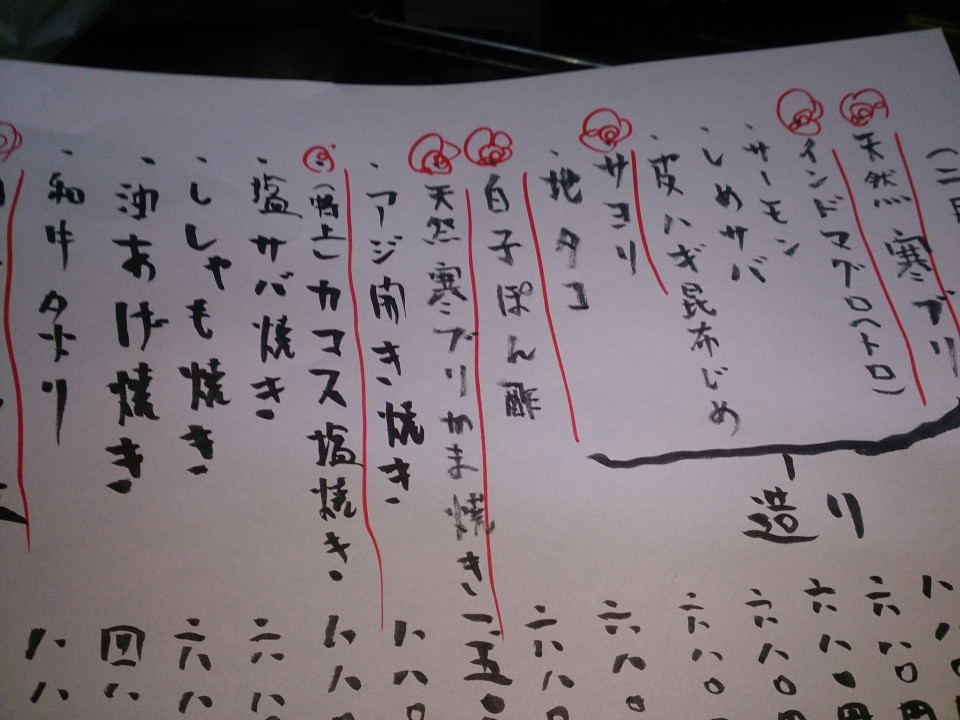 天然寒ブリ
インドマグロ(トロ) 八八
サーモン 六八〇円
しめサバ 六八〇円
皮ハギ昆布じめ 六八〇
サヨリ 六八〇
地タコ 六八〇
造り
白子ぽん酢 六八〇
天然寒ブリかま焼き 一五〇
アジ開き焼き 八八〇
カマス塩焼き 八八〇
塩サバ焼き 六八
ししゃも焼き 六八
油あげ焼き 四八
和牛タタリ 八八